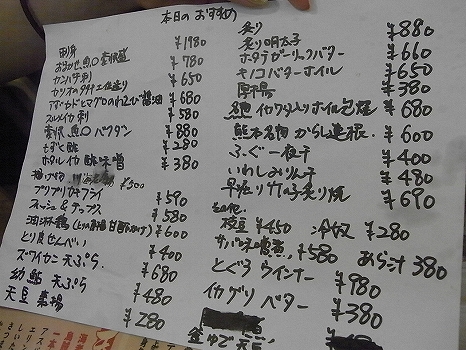 本日のおすすめ
刺身
おまかせ魚〇豪快盛 ¥1980
カンパチ刺 ¥780
カツオのタタキ 塩造り ¥650
アボカドとマグロのわさび醤油 ¥680
スルメイカ刺 ¥580
豪快魚〇バクダン ¥880
もずく酢 ¥280
ホタルイカ酢味噌 ¥380
¥500
プリプリエビフライ ¥590
フィッシュ&チップス ¥580
油淋鶏 ¥600
とり皮せんべい ¥400
ズワイカニ天ぷら ¥680
幼鮎天ぷら ¥480
天豆素揚 ¥280
炙り ¥880
炙り明太子 ¥660
ホタテガーリックバター ¥650
キノコバターホイル ¥380
厚揚 ¥680
イカワタ入りホイル包焼 ¥600
熊本名物からし蓮根 ¥400
ふぐ一夜干 ¥480
いわしみりん干 ¥690
早堀り竹の子炙り焼
その他
枝豆 ¥450 冷奴 ¥280
サバ味噌煮 ¥580 あら汁 380
とぐろウインナー ¥980
イカグリバター ¥380
釜ゆで天豆